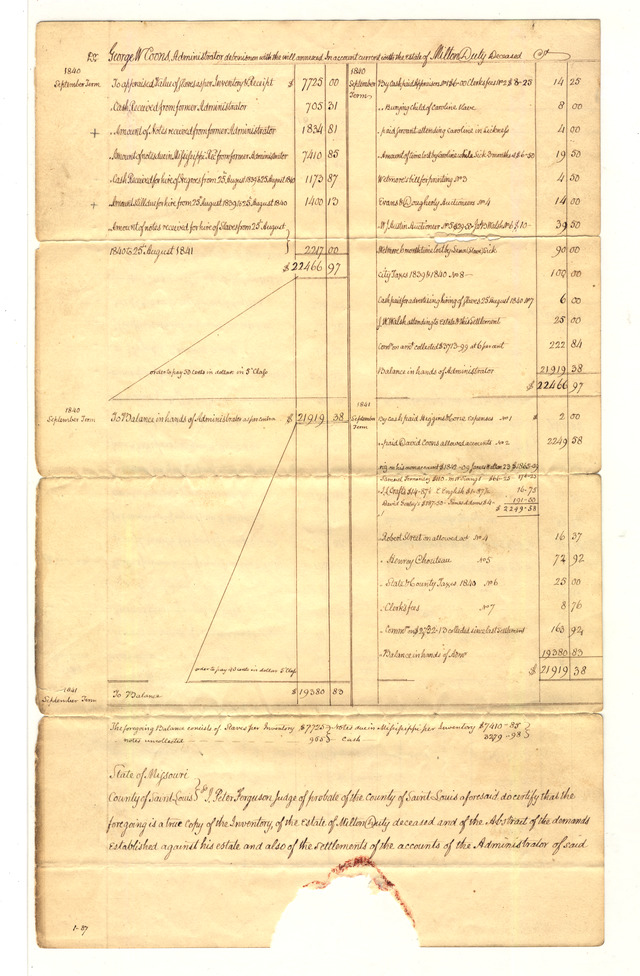 Dr George W Coons, Administrator debonisnon with the will annexed In account current with the estate of Milton Duty Deceased Cr
1840
September Term
To appraised Value of slaves as per Inventory & Receipt $ 7725 00
" Cash Received from former Administrator 705 31
+ " Amount of Notes received from former Administrator 1834 81
" Amount of notes due in Mississippi Recd from former Administrator 7410 85
" Cash Received for hire of Negroes from 25 August 1839 to 25 August 1840 1173 87
+ " Amount still due for hire from 25 August 1839 to 25 August 1840 1400 13
" Amount of notes received for hire of Slaves from 25 August
1840 to 25 August 1841 2217 00
$ 22466 97
order to pay 50 cents in dollar in 5th Class
1840
September Term
To Balance in hands of Administrator as per contra $ 21919 38
order to pay 40 cents in dollar 5 Class
1841
September Term
To Balance $ 19380 83
1840
September Term
By Cash paid Appraisers No 1 $6-00 Clerks fees No 2 $8-25 14 25
" Burying child of Caroline slave 8 00
" paid servant attending Caroline in Sickness 4 00
" Amount of time lost by Caroline while Sick 3 months at $6-50 19 50
" Wetmore's bill for printing No 3 4 50
" Evans & Dougherty Auctioneers No 4 14 00
39 50
90 00
City Taxes 1839 & 1840 No 8 100 00
Cash paid for advertising hiring of slaves 25 August 1840 No 7 6 00
J W Walsh attending to estate & this Settlement 25 00
Comsn on amt collected $3713-99 at 6 per cent 222 84
Balance in hands of Administrator 21919 38
$ 22466 97
1841
September Term
By cash paid Higgins & Corse expenses No 1 $ 2 00
" paid David Coons allowed accounts No 2 2249 58
$ 2249-58
" Robert Street on allowed act No 4 16 37
" Henry Chouteau No 5 72 92
" State & County Taxes 1840 No 6 25 00
" Clerk's fees No 7 8 76
" Commn on $2732-13 collected since last Settlement 163 92
" Balance in hands of Admr 19380 83
$ 21919 38
The foregoing Balance consists of Slaves per Inventory $7725 } Notes due in Mississippi per Inventory $7410-85 }
notes uncollected 955 } Cash 3279-98 }
State of Missouri
County of Saint Louis } ss I, Peter Ferguson Judge of probate of the County of Saint Louis aforesaid do certify that the
foregoing is a true copy of the Inventory, of the estate of Milton Duty deceased and of the Abstract of the demands
established against his estate and also of the settlements of the accounts of the Administrator of said
1-87